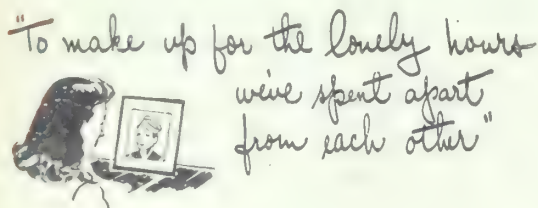 "To make up for the lonely hours
we've spent apart
from each other"